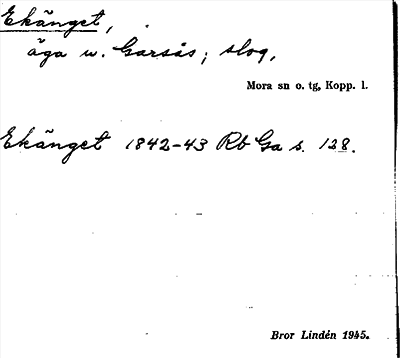 Ekänget,
äga u. Garsås; slog,
Mora sn o. tg, Kopp. l.
Ekänget 1842-43 Rb Ga s. 128.
Bror Lindén 1945.